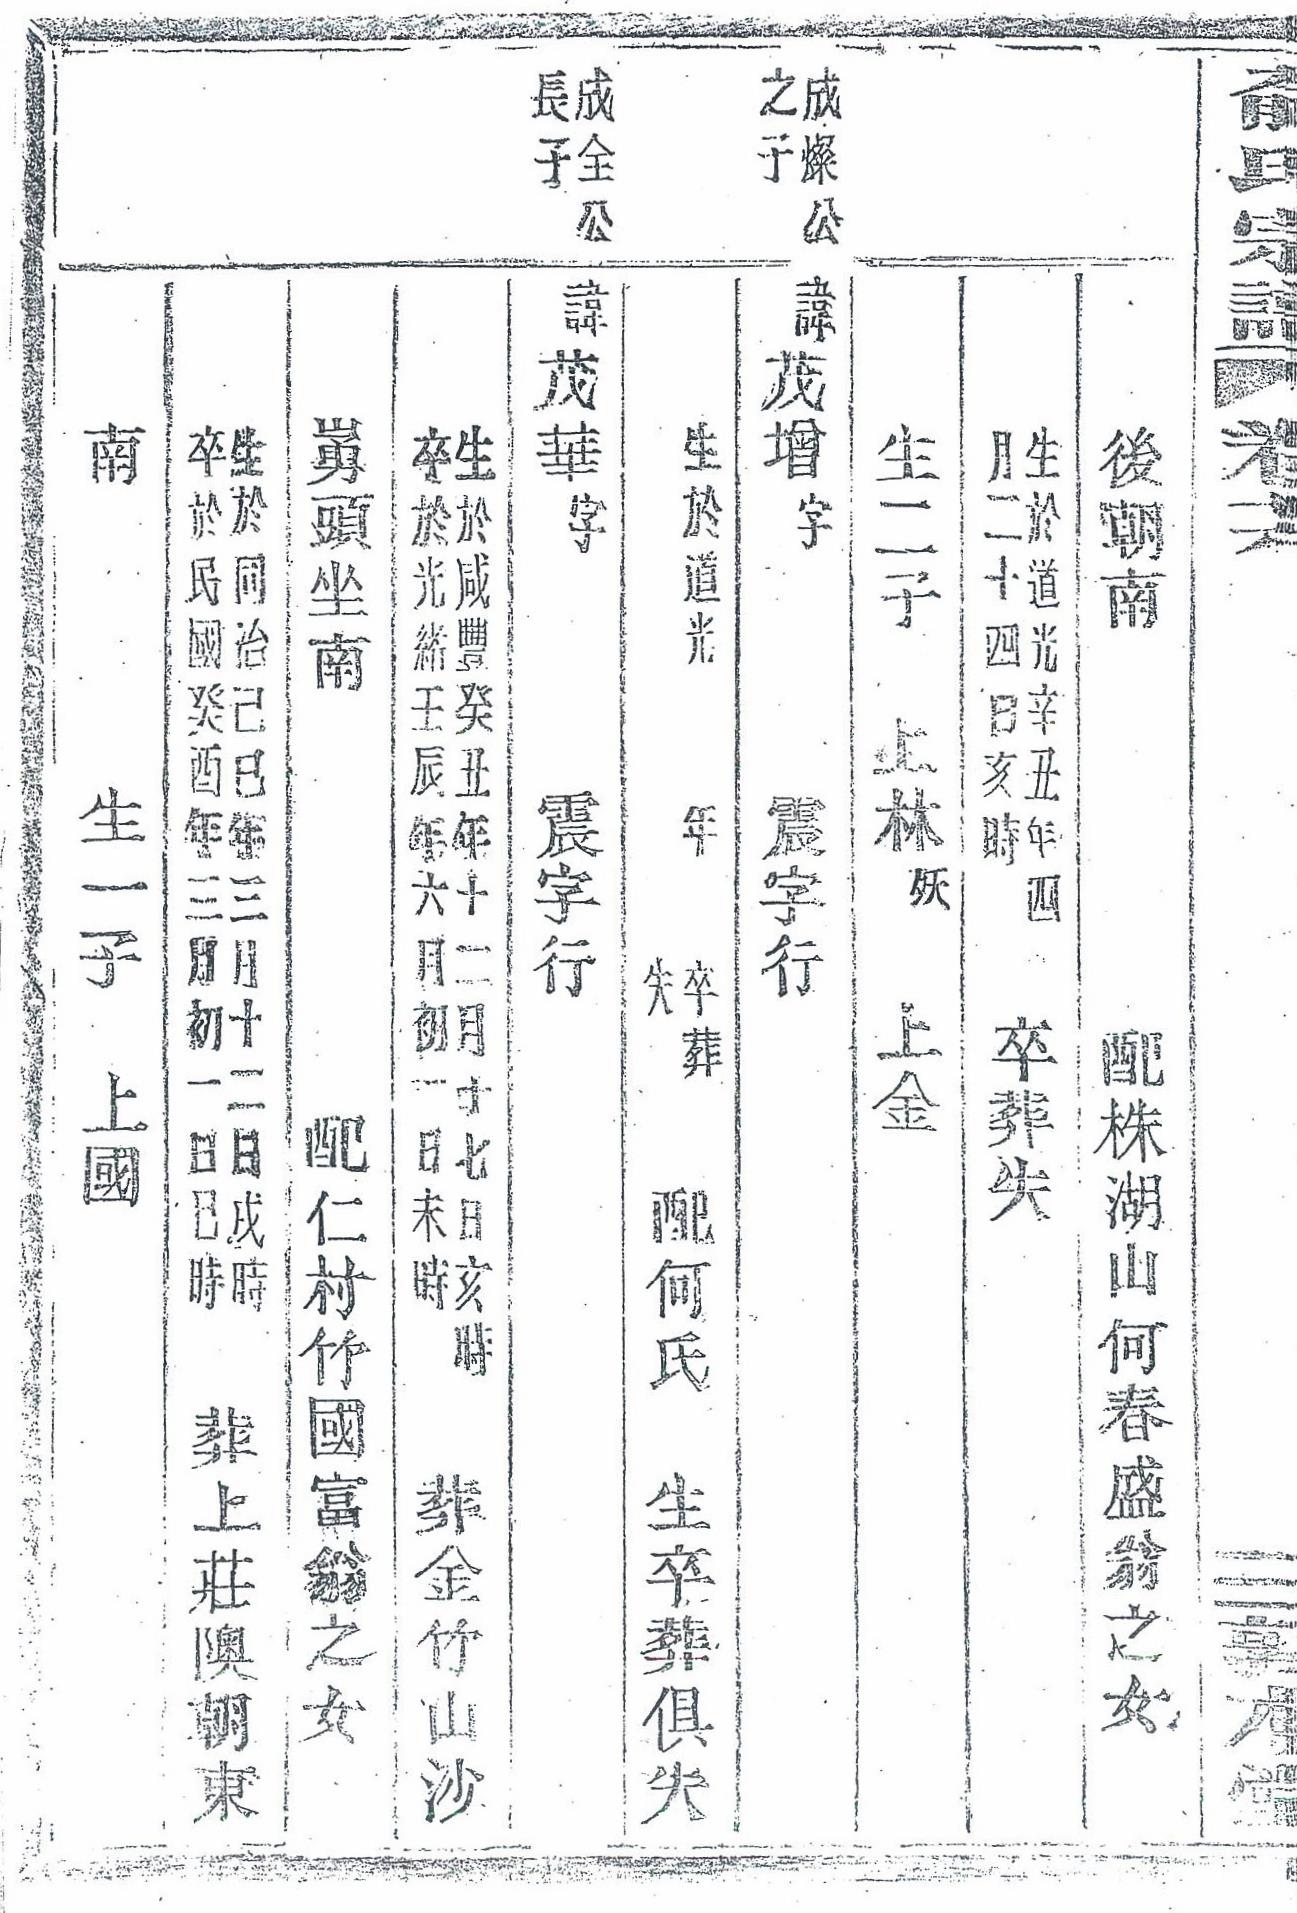 氏宗譜 卷六
後朝南 配株湖山何春盛翁之女
生於道光辛丑年四
月二十四日亥時 卒葬失
生二子 上林殀 上金
成燦公
之子
諱茂增字 震字行
生於道光 年 卒葬
失 配何氏 生卒葬俱失
成全公
長子
諱茂華字 震字行
生於咸豐癸丑年十二月十七日亥時
卒於光緒壬辰年六月初一日未時 葬金竹山沙
頭坐南 配仁村竹國富翁之女
生於同治己巳年三月十二日戌時
卒於民國癸酉年三月初一日巳時 葬上莊隩朝東
南 生一子 上國